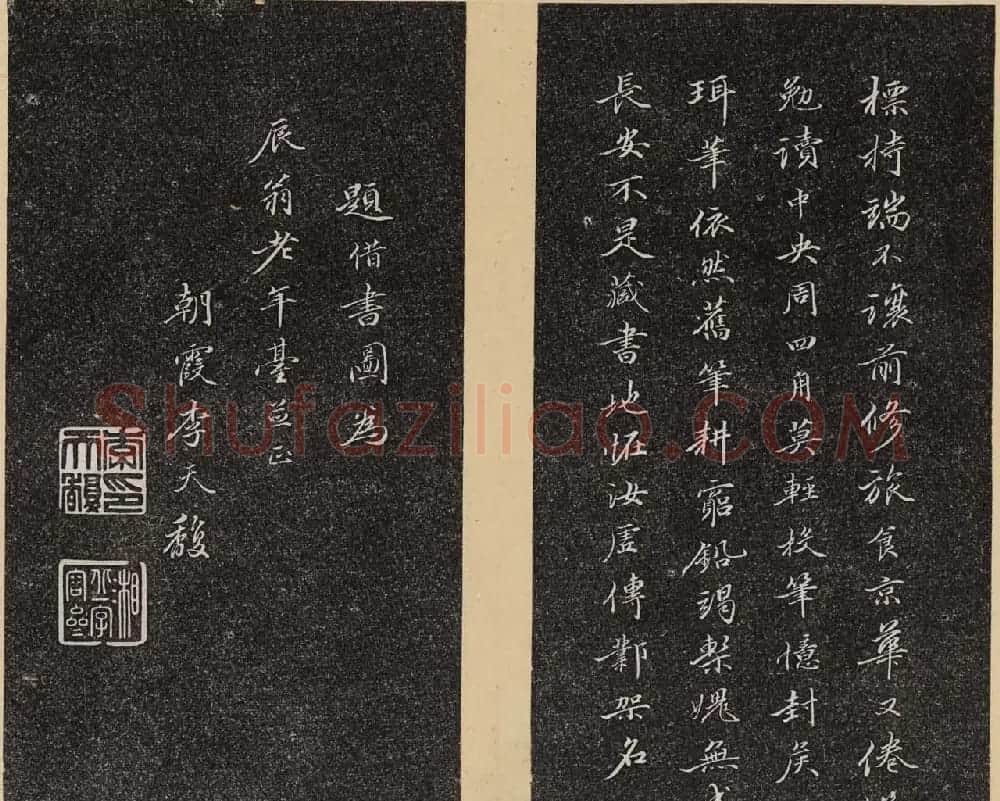 標持端不讓前修旅食京華又倦
勉讀中央周四角莫輕投筆憶封侯
珥筆依然舊筆耕竆鉛竭槧媿無
長安不是藏書地怪汝虛傳鄴架名
題借書圖為
辰翁老年臺並正
朝霞李天馥
李天馥印
Shufaziliao.COM